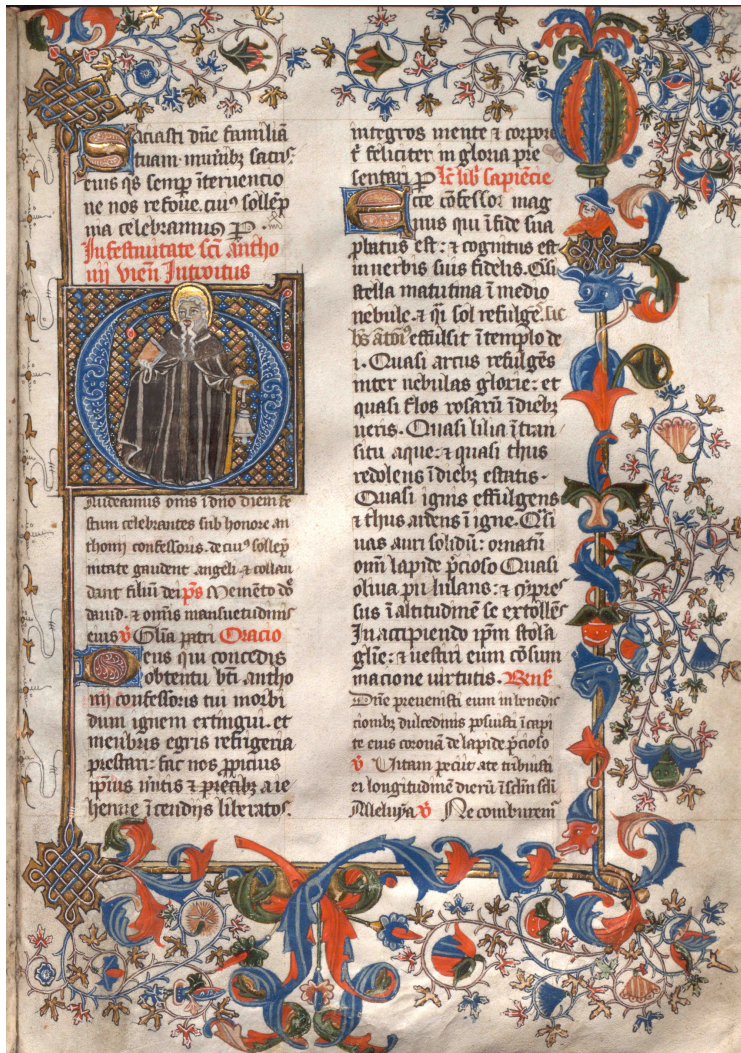 Saciasti dn̄e familiā
tuam · munibꝫ sacris
eius q̄s semꝑ īteruentio
ne nos refoue. cuiꝰ sollēp
nia celebramus P̲ ·
In festiuitate sc̄i antho
nij vien̄ Introitus
Gaudeamus om̄s ī dn̄o diem fe
stum celebrantes sub honore an
thonij confessoris. de cuiꝰ sollēp
nitate gaudent angeli ⁊ collau
dant filiū dei p̄s Memēto dn̄e
dauid. ⁊ om̄is mansuetudinis
eius ℣ Gl̄ia patri Oracio
Deus qui concedis
obtentu bt̄i antho
nij confessoris tui morbi
dum ignem extingui. et
membris egris refrigeria
prestari: fac nos ꝓpicius
ip̄ius mītis ⁊ precibꝫ a ie
henne īcendijs liberatos.
integros mente ⁊ corpore
t̄ feliciter in gloria pre
sentari P̲ Lc̄ lib̄ sapiēcie
Ecce cōfessor mag
nus qui ī fide sua
ꝓbatus est: ⁊ cognitus est
in uerbis suis fidelis. Q̄si
stella matutina ī medio
nebule. ⁊ q̄i sol refulgēs. sic
effulsit ī templo de
i. Quasi arcus refulgēs
inter nebulas glorie: et
quasi flos rosarū ī diebꝫ
ueris. Quasi lilia ī tran
situ aque: ⁊ quasi thus
redolens ī diebꝫ estatis.
Quasi ignis effulgens
⁊ thus ardens ī igne. Q̄si
uas auri solidū: ornatū
om̄i lapide p̄cioso Quasi
oliua pullulans: ⁊ cypres
sus ī altitudinē se extollēs
In accipiendo ip̄m stola
gl̄ie: ⁊ uestiri eum cōsum
macione uirtutis.
Dn̄e preuenisti eum in benedic
cionibꝫ dulcedinis posuisti ī capi
te eius coronā de lapide p̄cioso
℣ Uitam peciit a te tribuisti
ei longitudinē dierū ī sclm̄ scl̄i
Alleluya ℣ Ne comburem̄